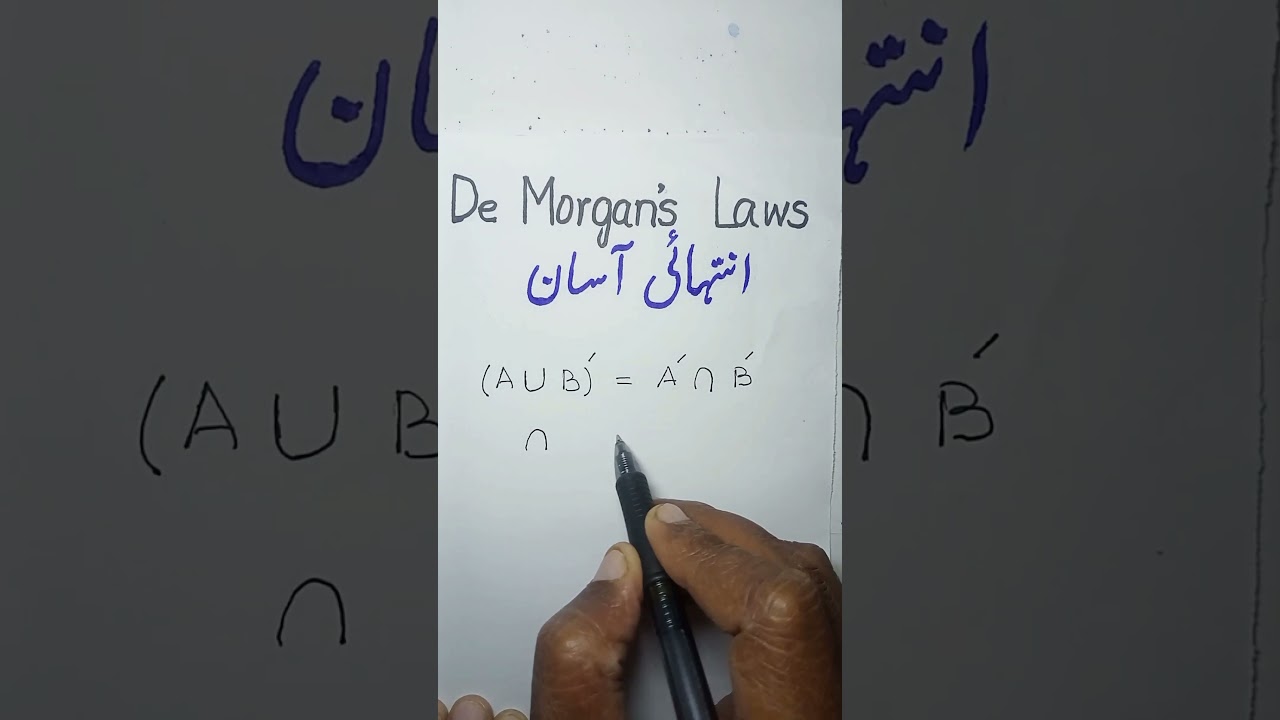 De Morgan's Laws
انتہائی آسان
(A∪B)′ = A′ ∩ B′
∩